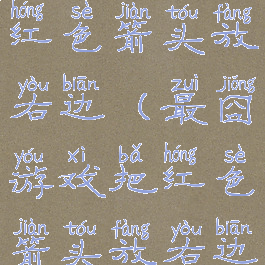 hóng sè jiàn tóu fàng
红色箭头放
yòu biān zuì jiǒng
右边(最囧
yóu xì bǎ hóng sè
游戏把红色
jiàn tóu fàng yòu biān
箭头放右边